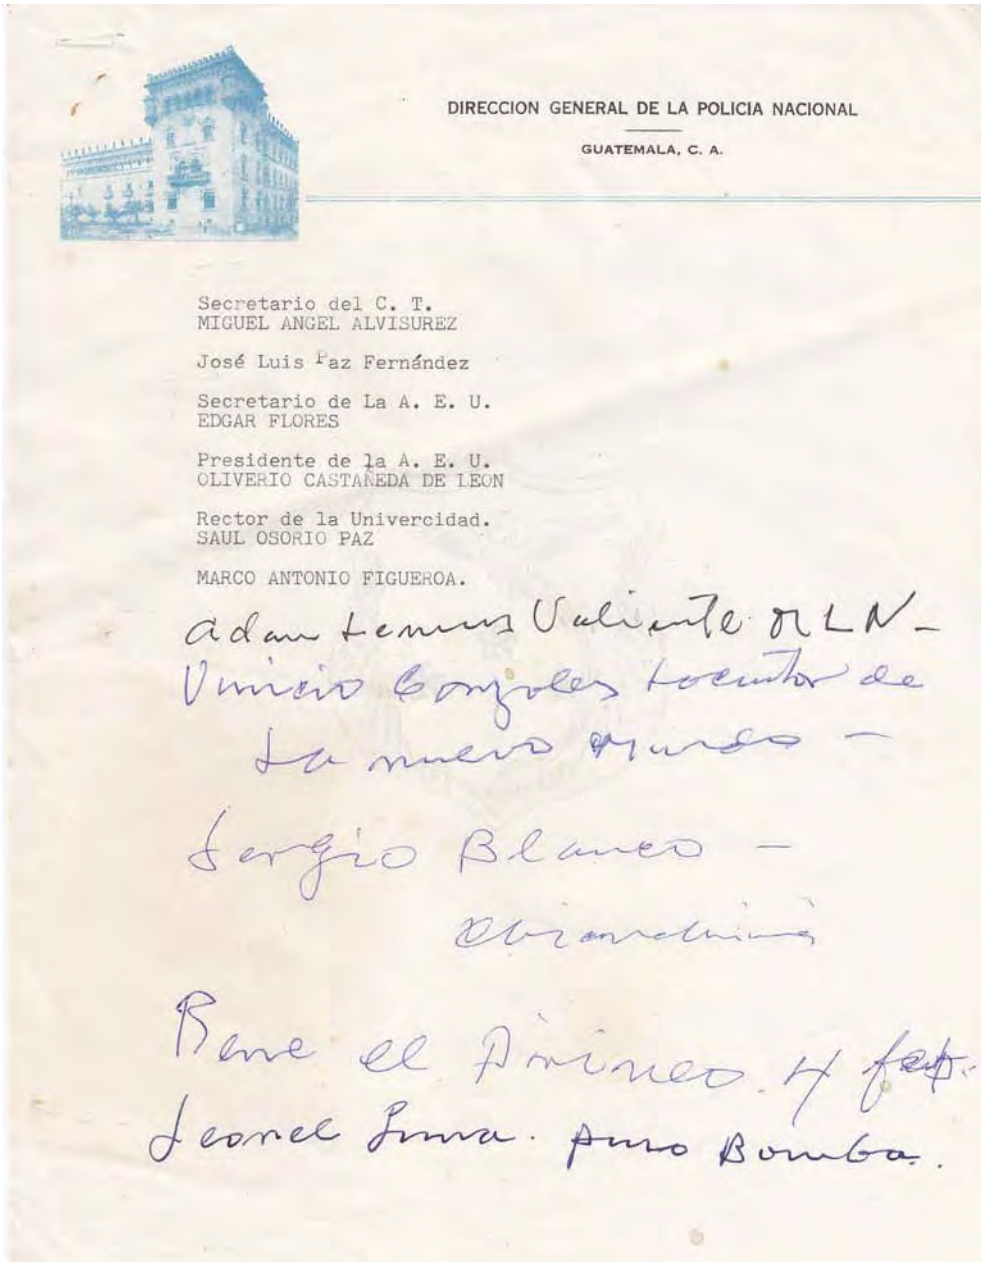 DIRECCION GENERAL DE LA POLICIA NACIONAL
GUATEMALA, C. A.
Secretario del C. T.
MIGUEL ANGEL ALVISUREZ
José Luis Paz Fernández
Secretario de La A. E. U.
EDGAR FLORES
Presidente de la A. E. U.
OLIVERIO CASTAÑEDA DE LEON
Rector de la Univercidad.
SAUL OSORIO PAZ
MARCO ANTONIO FIGUEROA.
Adan Lemus Valiente MLN-
Vinicio Gonzales Locutor de
La nuevo Mundo -
Sergio Blanco -
Rene el 4
Leonel Luna. Bomba.